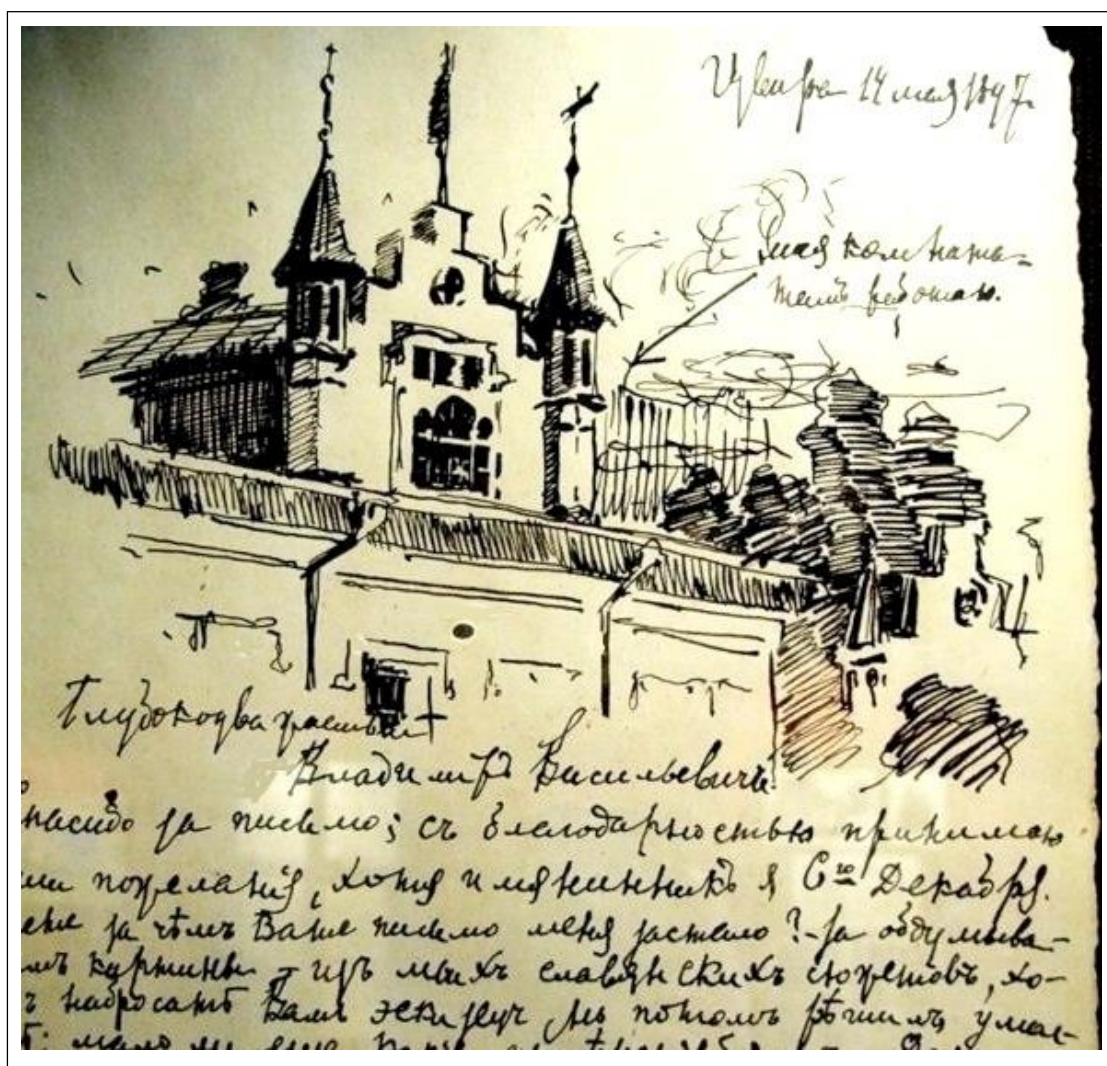 Извара 14 мая 1897
моя комната-
тамъ работаю.
Глубокоуважаемый
Владимиръ Васильевичъ
пасибо за письмо; съ благодарностью принимаю
ши пожеланія, хотя имянинникъ я 6го Декабря.
ете за чѣмъ Ваше письмо меня застало? - за обдумыва-
мъ картины - изъ моихъ славянскихъ сюжетовъ, хо-
ъ набросать Вамъ потомъ рѣшилъ умол-